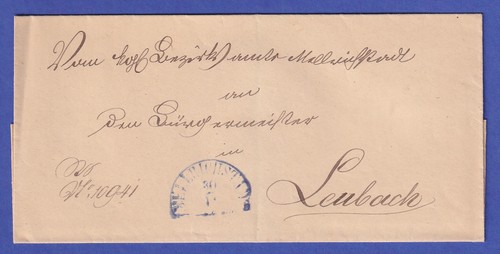 Vom kgl Bezirksamte Mellrichstadt
an
den Bürgermeister
in
Leubach
No: 10941
MELLRICHSTADT
30